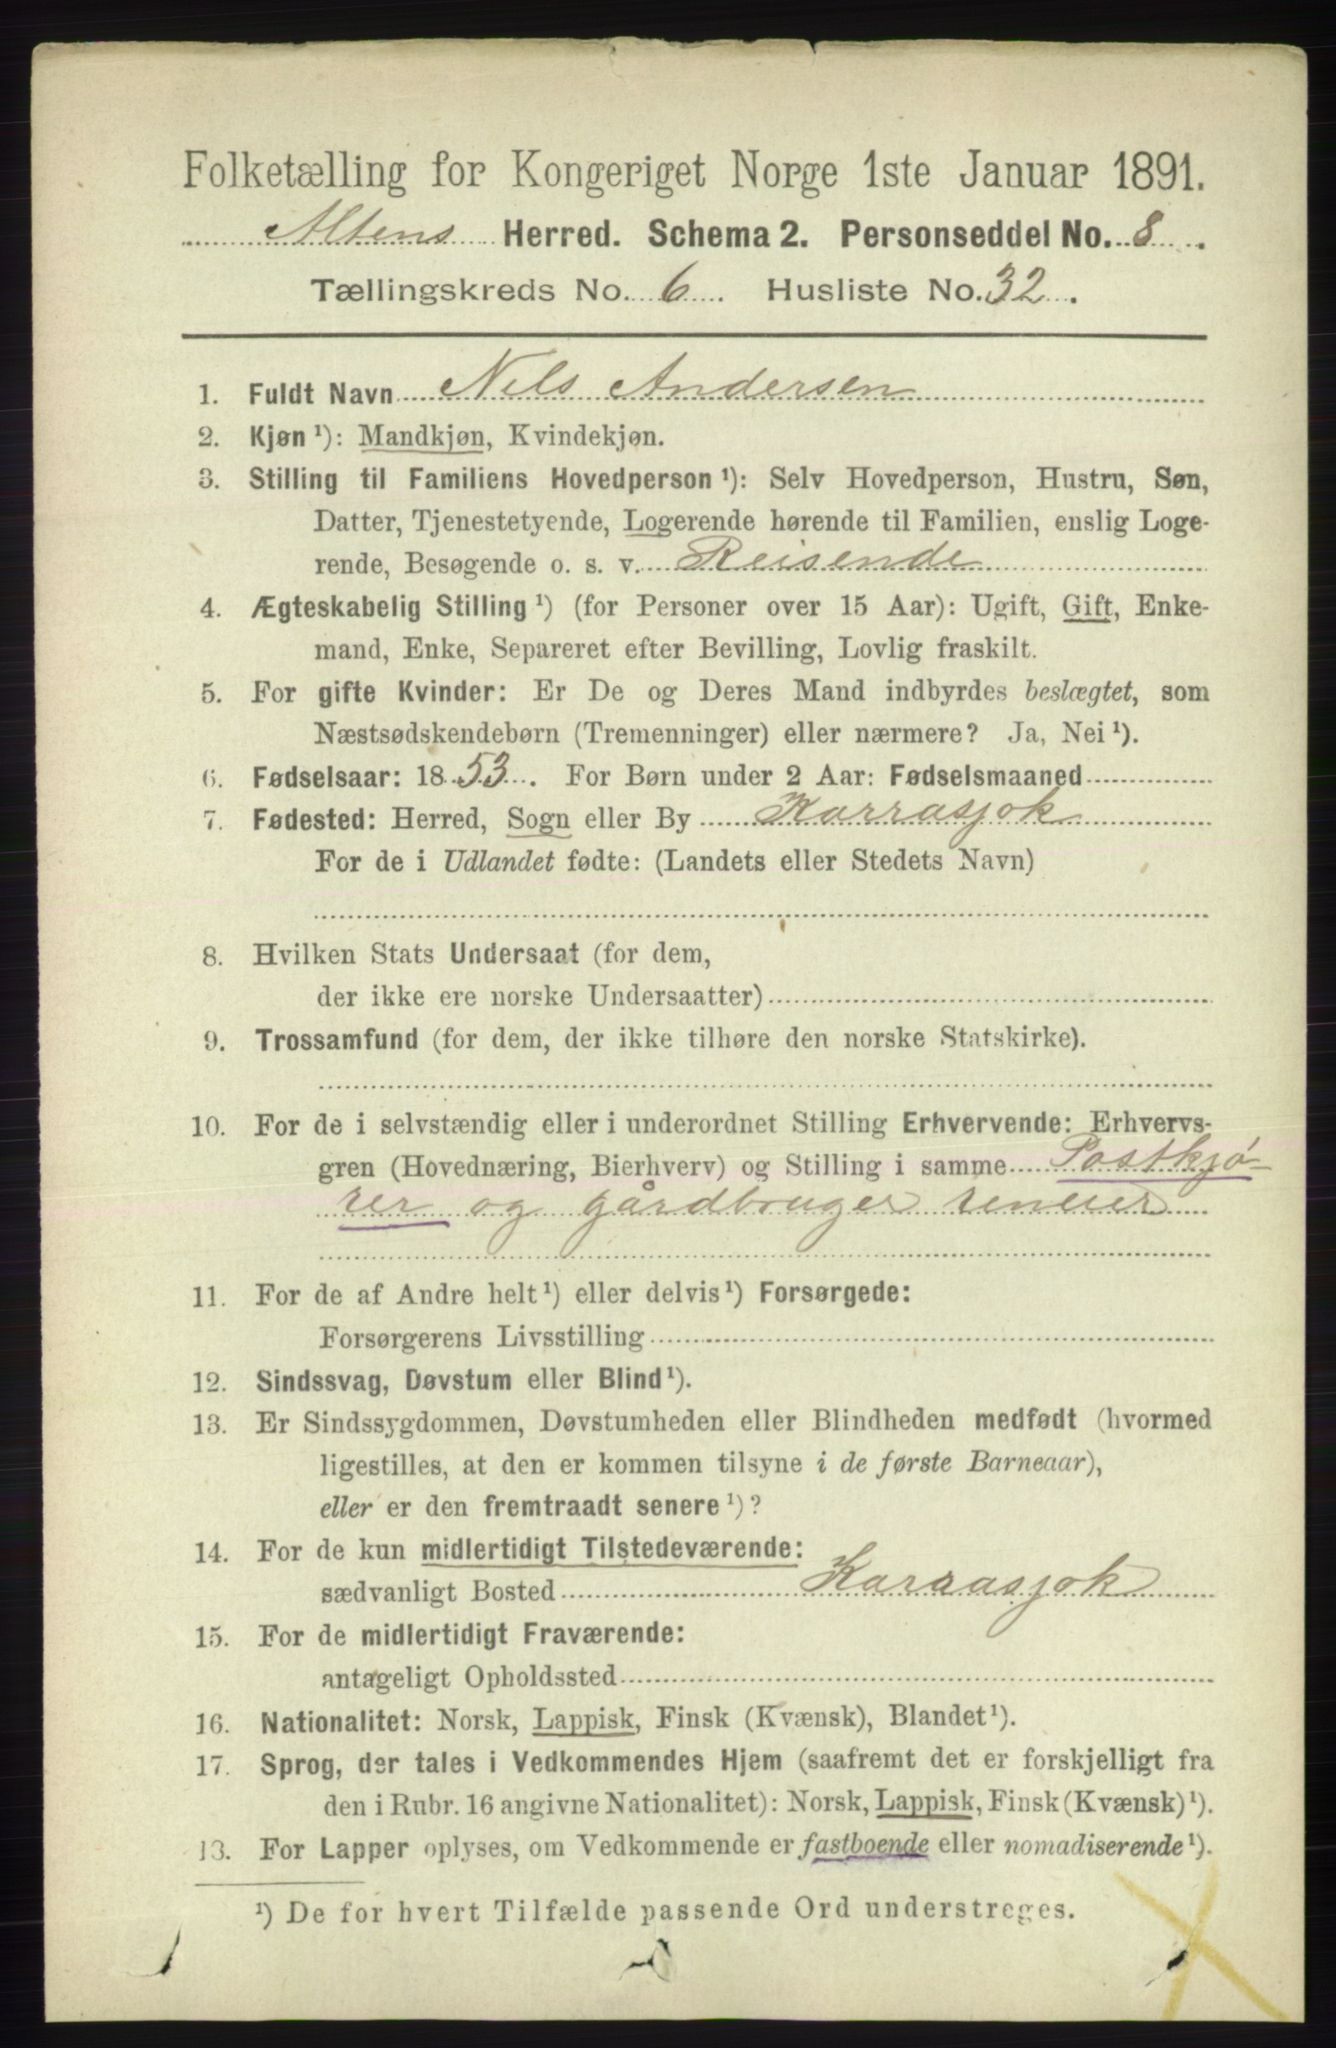 Folketælling for Kongeriget Norge 1ste Januar 1891.
Altens Herred. Schema 2. Personseddel No. 8.
Tællingskreds No. 6. Husliste No. 32.
1. Fuldt Navn Nils Andersen
2. Kjøn ¹): Mandkjøn, Kvindekjøn.
3. Stilling til Familiens Hovedperson ¹): Selv Hovedperson, Hustru, Søn,
Datter, Tjenestetyende, Logerende hørende til Familien, enslig Loge-
rende, Besøgende o. s. v. Reisende
4. Ægteskabelig Stilling ¹) (for Personer over 15 Aar): Ugift, Gift, Enke-
mand, Enke, Separeret efter Bevilling, Lovlig fraskilt.
5. For gifte Kvinder: Er De og Deres Mand indbyrdes beslægtet, som
Næstsødskendebørn (Tremenninger) eller nærmere? Ja, Nei ¹).
6. Fødselsaar: 1853. For Børn under 2 Aar: Fødselsmaaned
7. Fødested: Herred, Sogn eller By Karrasjok
For de i Udlandet fødte: (Landets eller Stedets Navn)
8. Hvilken Stats Undersaat (for dem,
der ikke ere norske Undersaatter)
9. Trossamfund (for dem, der ikke tilhøre den norske Statskirke).
10. For de i selvstændig eller i underordnet Stilling Erhvervende: Erhvervs-
gren (Hovednæring, Bierhverv) og Stilling i samme Postkjø-
rer og gårdbruger reneier
11. For de af Andre helt ¹) eller delvis ¹) Forsørgede:
Forsørgerens Livsstilling
12. Sindssvag, Døvstum eller Blind ¹).
13. Er Sindssygdommen, Døvstumheden eller Blindheden medfødt (hvormed
ligestilles, at den er kommen tilsyne i de første Barneaar),
eller er den fremtraadt senere ¹)?
14. For de kun midlertidigt Tilstedeværende:
sædvanligt Bosted Karaasjok
15. For de midlertidigt Fraværende:
antageligt Opholdssted
16. Nationalitet: Norsk, Lappisk, Finsk (Kvænsk), Blandet ¹).
17. Sprog, der tales i Vedkommendes Hjem (saafremt det er forskjelligt fra
den i Rubr. 16 angivne Nationalitet): Norsk, Lappisk, Finsk (Kvænsk) ¹).
13. For Lapper oplyses, om Vedkommende er fastboende eller nomadiserende ¹).
¹) De for hvert Tilfælde passende Ord understreges.